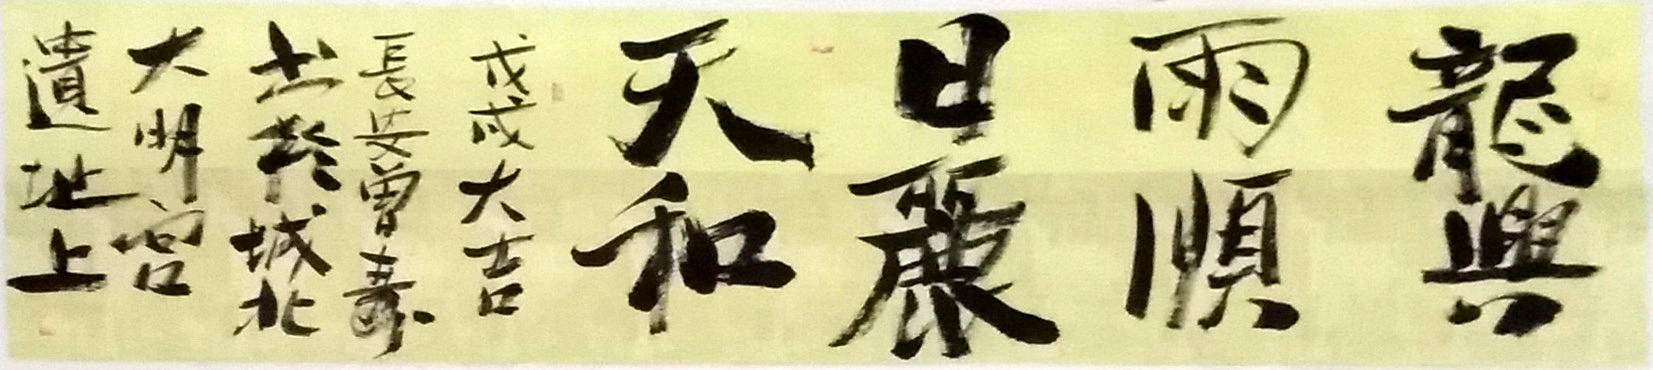 龍興
雨順
日麗
天和
戊戌大吉
長安曾壽
書於城北
大明宮
遺地上